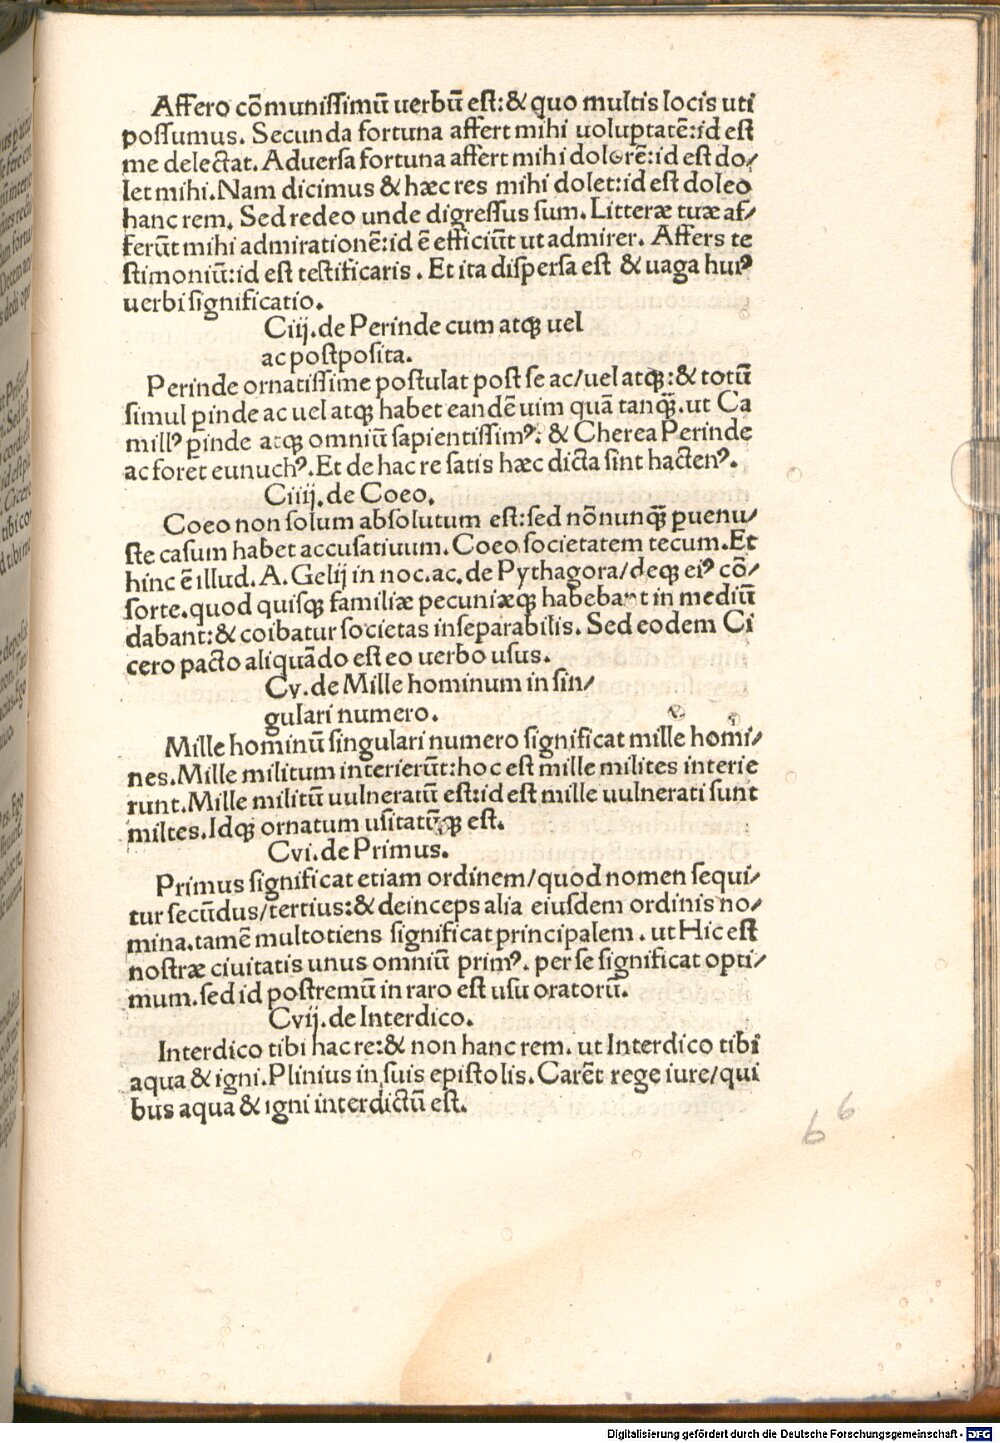 Affero cōmunissimū uerbū est:& quo multis locis uti
possumus. Secunda fortuna affert mihi uoluptatē:id est
me delectat. Aduersa fortuna affert mihi dolorē:id est do⸗
let mihi. Nam dicimus & hæc res mihi dolet:id est doleo
hanc rem. Sed redeo unde digressus sum. Litteræ tuæ af⸗
ferūt mihi admirationē:id ē efficiūt ut admirer. Affers te
stimoniū:id est testificaris. Et ita dispersa est & uaga huiꝰ
uerbi significatio.
Ciij. de Perinde cum atqꝫ uel
ac postposita.
Perinde ornatissime postulat post se ac/uel atqꝫ:& totū
simul ꝑinde ac uel atqꝫ habet eandē uim quā tanqꝫ̄. ut Ca
millꝰ ꝑinde atqꝫ omniū sapientissimꝰ: & Cherea Perinde
ac foret eunuchꝰ. Et de hac re satis hæc dicta sint hactenꝰ.
Ciiij. de Coeo.
Coeo non solum absolutum est:sed nōnunqꝫ̄ ꝑuenu⸗
ste casum habet accusatiuum. Coeo societatem tecum. Et
hinc ē illud. A. Gelij in noc. ac. de Pythagora/deqꝫ eiꝰ cō⸗
sorte. quod quisqꝫ familiæ pecuniæqꝫ habebant in mediū
dabant:& coibatur societas inseparabilis. Sed eodem Ci
cero pacto aliquādo est eo uerbo usus.
Cv. de Mille hominum in sin⸗
gulari numero.
Mille hominū singulari numero significat mille homi⸗
nes. Mille militum interierūt:hoc est mille milites interie
runt. Mille militū uulneratū est:id est mille uulnerati sunt
miltes. Idqꝫ ornatum usitatūqꝫ est.
Cvi. de Primus.
Primus significat etiam ordinem/quod nomen sequi⸗
tur secūdus/tertius:& deinceps alia eiusdem ordinis no⸗
mina. tamē multotiens significat principalem. ut Hic est
nostræ ciuitatis unus omniū primꝰ. per se significat opti⸗
mum. sed id postremū in raro est usu oratorū.
Cvij. de Interdico.
Interdico tibi hac re:& non hanc rem. ut Interdico tibi
aqua & igni. Plinius in suis epistolis. Carēt rege iure/qui
bus aqua & igni interdictū est.
66
Digitalisierung gefördert durch die Deutsche Forschungsgemeinschaft - DFG